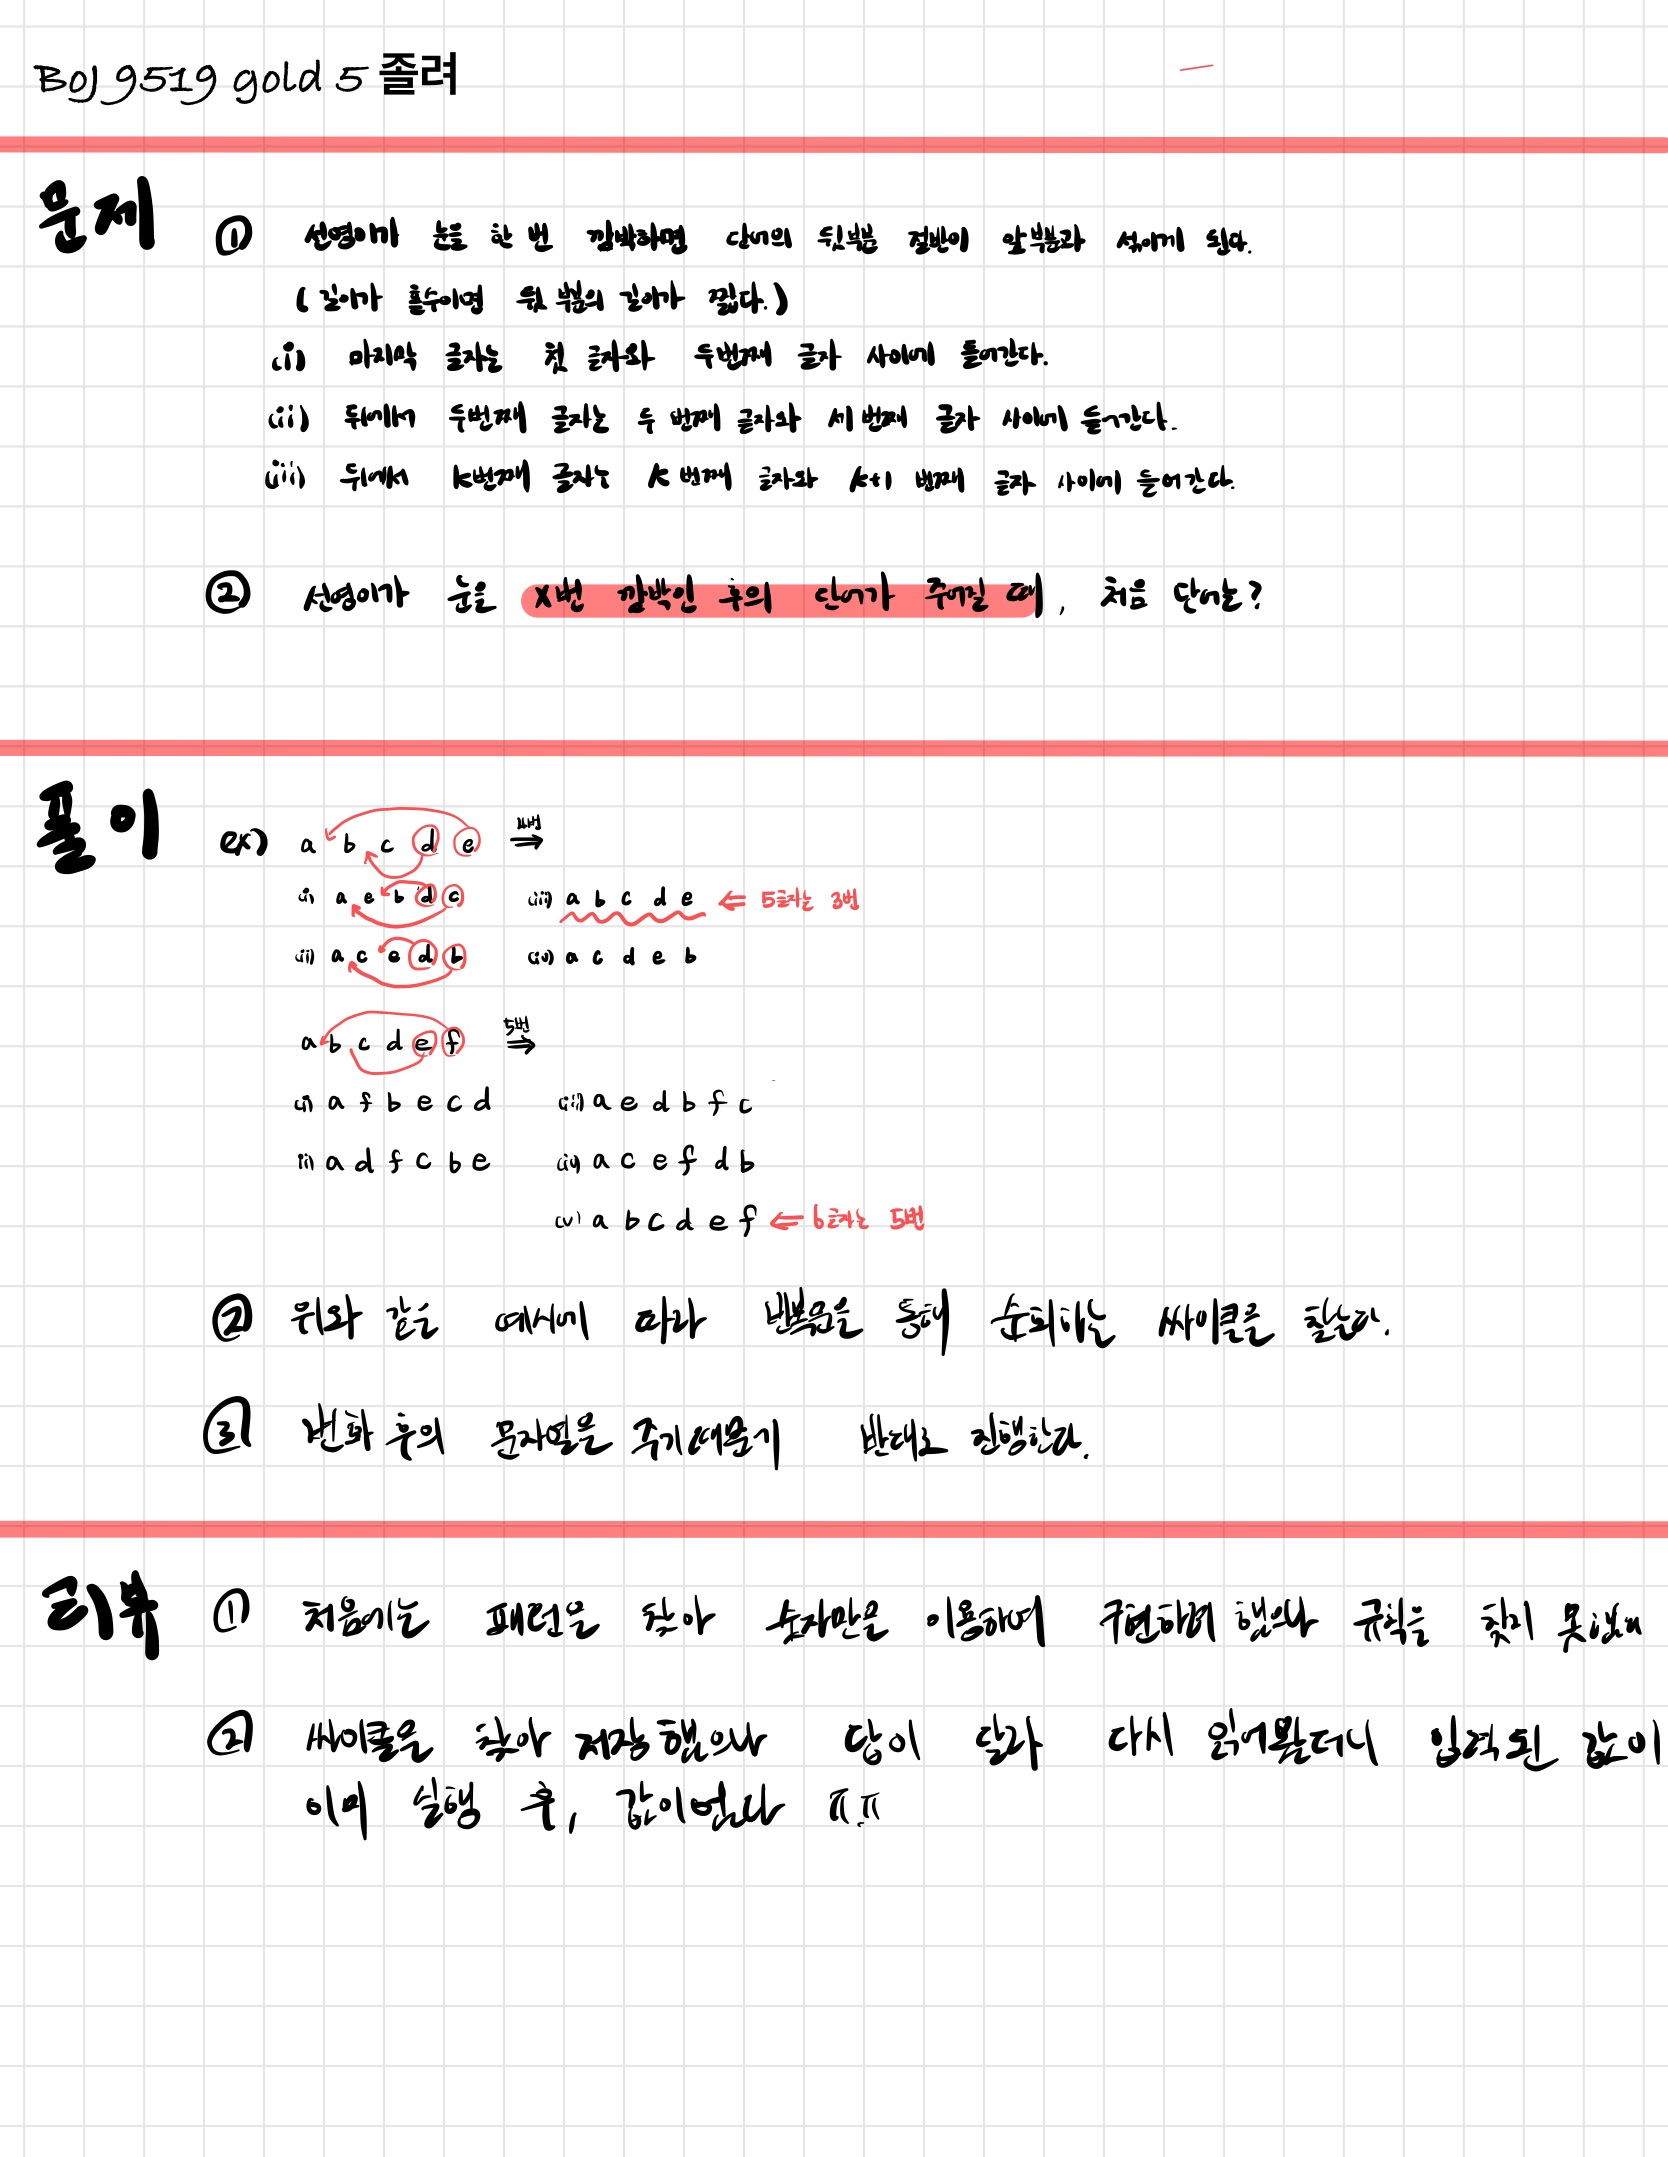 BOJ 9519 gold 5 졸려
문제
① 선영이가 눈을 한 번 깜박하면 단어의 뒷부분 절반이 앞부분과 섞이게 된다.
( 길이가 홀수이면 뒷 부분의 길이가 짧다.)
(i) 마지막 글자는 첫 글자와 두번째 글자 사이에 들어간다.
(ii) 뒤에서 두번째 글자는 두 번째 글자와 세 번째 글자 사이에 들어간다.
(iii) 뒤에서 k번째 글자는 k 번째 글자와 k+1 번째 글자 사이에 들어간다.
② 선영이가 눈을 x번 깜박인 후의 단어가 주어질 때, 처음 단어는?
풀이
ex) a b c d e 4번 ⇒
(i) a e b d c (iii) a b c d e ⇐ 5글자는 3번
(ii) a c e d b (iv) a c d e b
a b c d e f 5번 ⇒
(i) a f b e c d (iii) a e d b f c
ii) a d f c b e (iv) a c e f d b
(v) a b c d e f ⇐ 6글자는 5번
② 위와 같은 예시에 따라 반복문을 통해 순회하는 싸이클을 찾는다.
③ 변화 후의 문자열을 주기때문에 반대로 진행한다.
리뷰
① 처음에는 패턴을 찾아 숫자만을 이용하여 구현하려 했으나 규칙을 찾지 못했다
② 싸이클을 찾아 저장했으나 답이 달라 다시 읽어봤더니 입력된 값이
이미 실행 후, 값이었다 ㅠㅠ